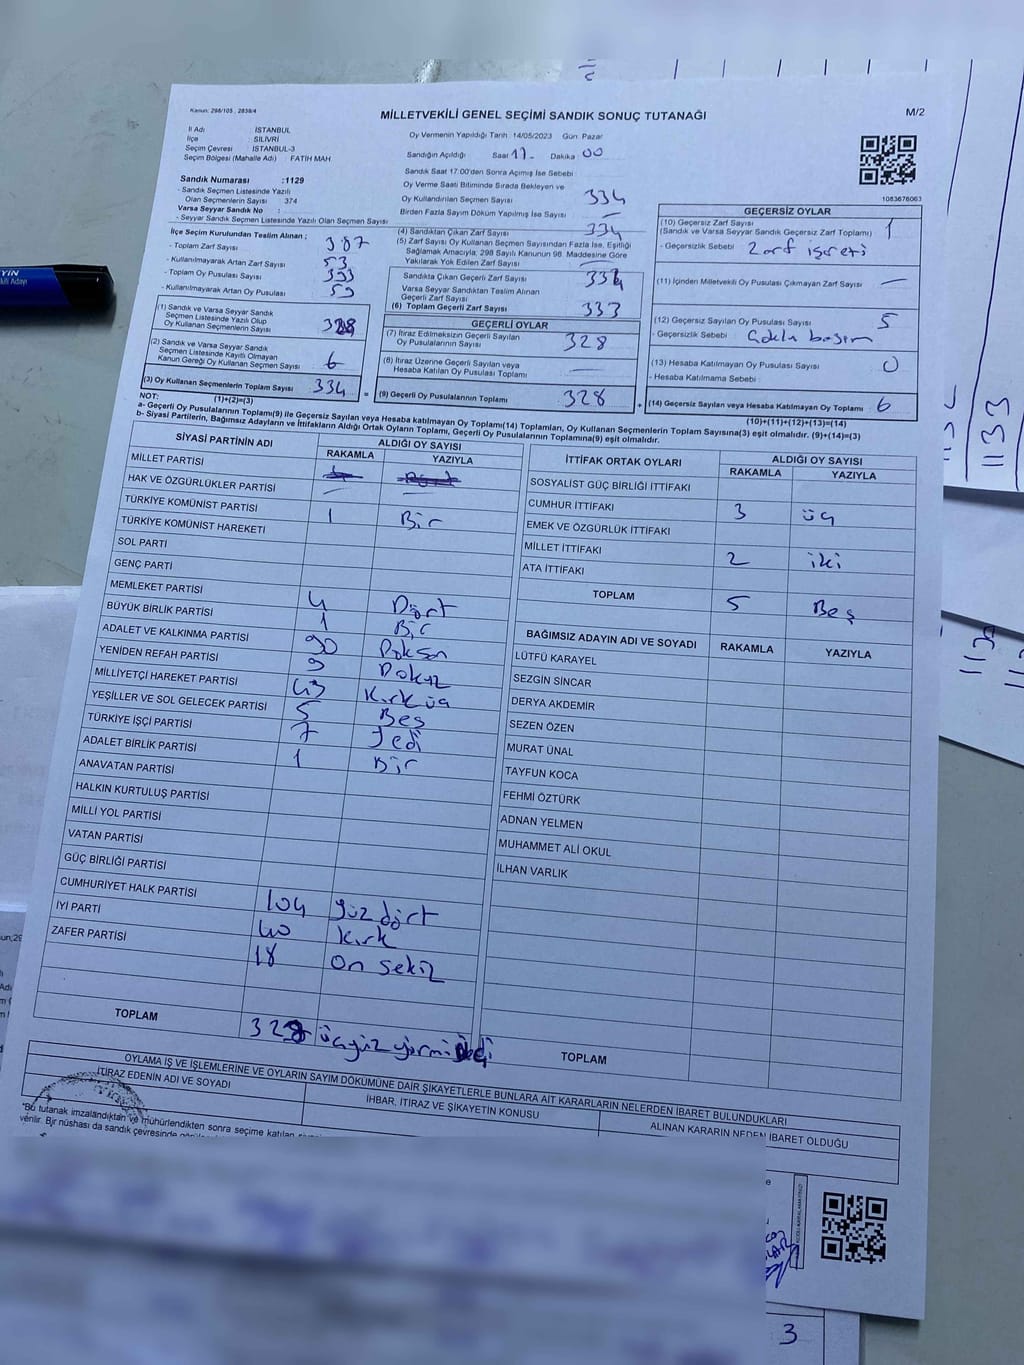 Kanun: 298/105 ; 2839/4
MİLLETVEKİLİ GENEL SEÇİMİ SANDIK SONUÇ TUTANAĞI
M/2
İl Adı : İSTANBUL
İlçe : SİLİVRİ
Seçim Çevresi : İSTANBUL-3
Seçim Bölgesi (Mahalle Adı) : FATİH MAH
Sandık Numarası :1129
- Sandık Seçmen Listesinde Yazılı
Olan Seçmenlerin Sayısı 374
Varsa Seyyar Sandık No :
- Seyyar Sandık Seçmen Listesinde Yazılı Olan Seçmen Sayısı
İlçe Seçim Kurulundan Teslim Alınan ;
- Toplam Zarf Sayısı 387
- Kullanılmayarak Artan Zarf Sayısı 53
- Toplam Oy Pusulası Sayısı
- Kullanılmayarak Artan Oy Pusulası
(1) Sandık ve Varsa Seyyar Sandık
Seçmen Listesinde Yazılı Olup
Oy Kullanan Seçmenlerin Sayısı 328
(2) Sandık ve Varsa Seyyar Sandık
Seçmen Listesinde Kayıtlı Olmayan
Kanun Gereği Oy Kullanan Seçmen Sayısı 6
(3) Oy Kullanan Seçmenlerin Toplam Sayısı 334
Oy Vermenin Yapıldığı Tarih :14/05/2023 Gün: Pazar
Sandığın Açıldığı Saat 17- Dakika 00
Sandık Saat 17:00'den Sonra Açımış İse Sebebi :
Oy Verme Saati Bitiminde Sırada Bekleyen ve
Oy Kullandırılan Seçmen Sayısı 334
Birden Fazla Sayım Döküm Yapılmış İse Sayısı —
(4) Sandıktan Çıkan Zarf Sayısı 334
(5) Zarf Sayısı Oy Kullanan Seçmen Sayısından Fazla İse, Eşitliği
Sağlamak Amacıyla, 298 Sayılı Kanunun 98. Maddesine Göre
Yakılarak Yok Edilen Zarf Sayısı —
Sandıkta Çıkan Geçerli Zarf Sayısı 334
Varsa Seyyar Sandıktan Teslim Alınan
Geçerli Zarf Sayısı —
(6) Toplam Geçerli Zarf Sayısı 333
GEÇERLİ OYLAR
(7) İtiraz Edilmeksizin Geçerli Sayılan
Oy Pusulalarının Sayısı 328
(8) İtiraz Üzerine Geçerli Sayılan veya
Hesaba Katılan Oy Pusulası Toplamı —
= (9) Geçerli Oy Pusulalarının Toplamı 328
1083676063
GEÇERSİZ OYLAR
(10) Geçersiz Zarf Sayısı
(Sandık ve Varsa Seyyar Sandık Geçersiz Zarf Toplamı) 1
- Geçersizlik Sebebi Zarf işareti
(11) İçinden Milletvekili Oy Pusulası Çıkmayan Zarf Sayısı —
(12) Geçersiz Sayılan Oy Pusulası Sayısı 5
- Geçersizlik Sebebi Çoklu basım
(13) Hesaba Katılmayan Oy Pusulası Sayısı 0
- Hesaba Katılmama Sebebi :
+ (14) Geçersiz Sayılan veya Hesaba Katılmayan Oy Toplamı 6
NOT: (1)+(2)=(3)
(10)+(11)+(12)+(13)=(14)
a- Geçerli Oy Pusulalarının Toplamı(9) ile Geçersiz Sayılan veya Hesaba katılmayan Oy Toplamı(14) Toplamları, Oy Kullanan Seçmenlerin Toplam Sayısına(3) eşit olmalıdır. (9)+(14)=(3)
b- Siyasi Partilerin, Bağımsız Adayların ve İttifakların Aldığı Ortak Oyların Toplamı, Geçerli Oy Pusulalarının Toplamına(9) eşit olmalıdır.
SİYASİ PARTİNİN ADI ALDIĞI OY SAYISI
RAKAMLA YAZIYLA
MİLLET PARTİSİ
HAK VE ÖZGÜRLÜKLER PARTİSİ — —
TÜRKİYE KOMÜNİST PARTİSİ 1 Bir
TÜRKİYE KOMÜNİST HAREKETİ
SOL PARTİ
GENÇ PARTİ
MEMLEKET PARTİSİ 4 Dört
BÜYÜK BİRLİK PARTİSİ 1 Bir
ADALET VE KALKINMA PARTİSİ 90 Doksan
YENİDEN REFAH PARTİSİ 9 Dokuz
MİLLİYETÇİ HAREKET PARTİSİ 43 Kırk üç
YEŞİLLER VE SOL GELECEK PARTİSİ 5 Beş
TÜRKİYE İŞÇİ PARTİSİ 7 Yedi
ADALET BİRLİK PARTİSİ 1 Bir
ANAVATAN PARTİSİ
HALKIN KURTULUŞ PARTİSİ
MİLLİ YOL PARTİSİ
VATAN PARTİSİ
GÜÇ BİRLİĞİ PARTİSİ
CUMHURİYET HALK PARTİSİ 104 Yüz dört
İYİ PARTİ 40 Kırk
ZAFER PARTİSİ 18 On sekiz
TOPLAM 328 üçyüz yirmi
İTTİFAK ORTAK OYLARI ALDIĞI OY SAYISI
RAKAMLA YAZIYLA
SOSYALİST GÜÇ BİRLİĞİ İTTİFAKI
CUMHUR İTTİFAKI 3 üç
EMEK VE ÖZGÜRLÜK İTTİFAKI
MİLLET İTTİFAKI 2 iki
ATA İTTİFAKI
TOPLAM 5 Beş
BAĞIMSIZ ADAYIN ADI VE SOYADI RAKAMLA YAZIYLA
LÜTFÜ KARAYEL
SEZGİN SİNCAR
DERYA AKDEMİR
SEZEN ÖZEN
MURAT ÜNAL
TAYFUN KOCA
FEHMİ ÖZTÜRK
ADNAN YELMEN
MUHAMMET ALİ OKUL
İLHAN VARLIK
TOPLAM
OYLAMA İŞ VE İŞLEMLERİNE VE OYLARIN SAYIM DÖKÜMÜNE DAİR ŞİKAYETLERLE BUNLARA AİT KARARLARIN NELERDEN İBARET BULUNDUKLARI
İTİRAZ EDENİN ADI VE SOYADI İHBAR, İTİRAZ VE ŞİKAYETİN KONUSU ALINAN KARARIN NEDEN İBARET OLDUĞU
"Bu tutanak imzalandıktan ve mühürlendikten sonra seçime katılan
verilir. Bir nüshası da sandık çevresinde
1133
3